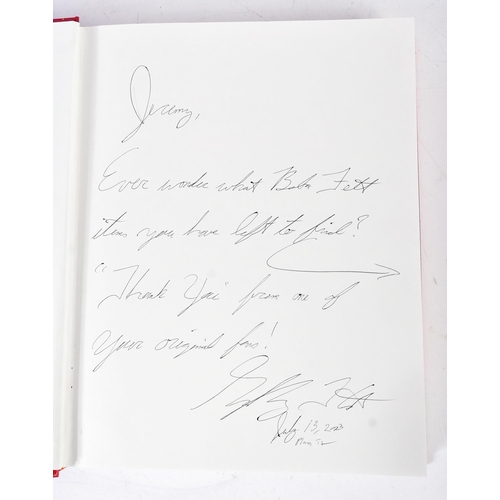 Jeremy,
Ever wonder what Boba Fett
items you have left to find?
"Thank You" from one of
your original fans!
Fett
July 13, 2003